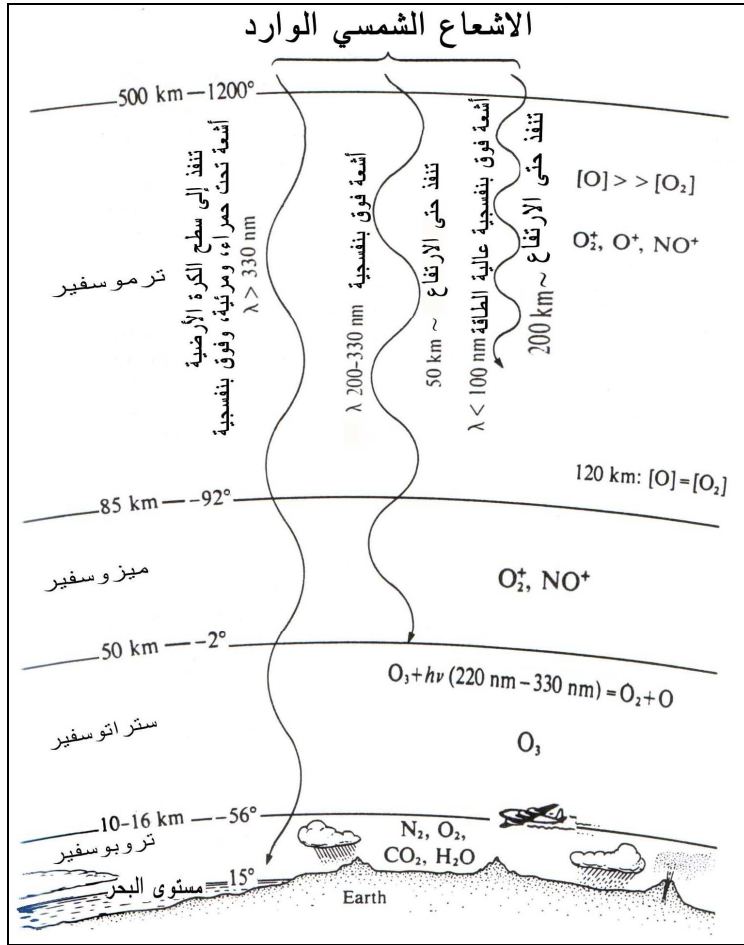 الاشعاع الشمسي الوارد
500 km — 1200°
تنفذ إلى سطح الكرة الأرضية
أشعة تحت حمراء، ومرئية، وفوق بنفسجية
λ > 330 nm
أشعة فوق بنفسجية λ 200-330 nm
تنفذ حتى الارتفاع ~ 50 km
أشعة فوق بنفسجية عالية الطاقة λ < 100 nm
تنفذ حتى الارتفاع ~ 200 km
[O] > > [O₂]
O₂⁺, O⁺, NO⁺
ترموسفير
120 km: [O] = [O₂]
85 km — -92°
ميزوسفير
O₂⁺, NO⁺
50 km — -2°
O₃ + hν (220 nm – 330 nm) = O₂ + O
ستراتوسفير
O₃
10-16 km — -56°
تروبوسفير
N₂, O₂,
CO₂, H₂O
مستوى البحر 15°
Earth